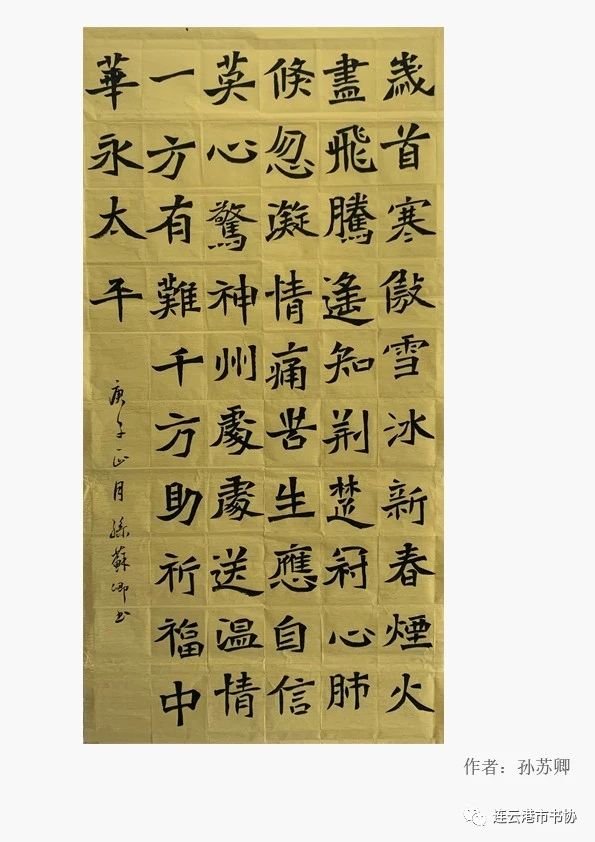 歲首寒傲雪冰新春煙火
盡飛騰遙知荆楚冠心肺
倏忽凝情痛苦生應自信
莫心驚神州處處送温情
一方有難千方助祈福中
華永太平
庚子正月孫蘇卿書
作者：孙苏卿
连云港市书协